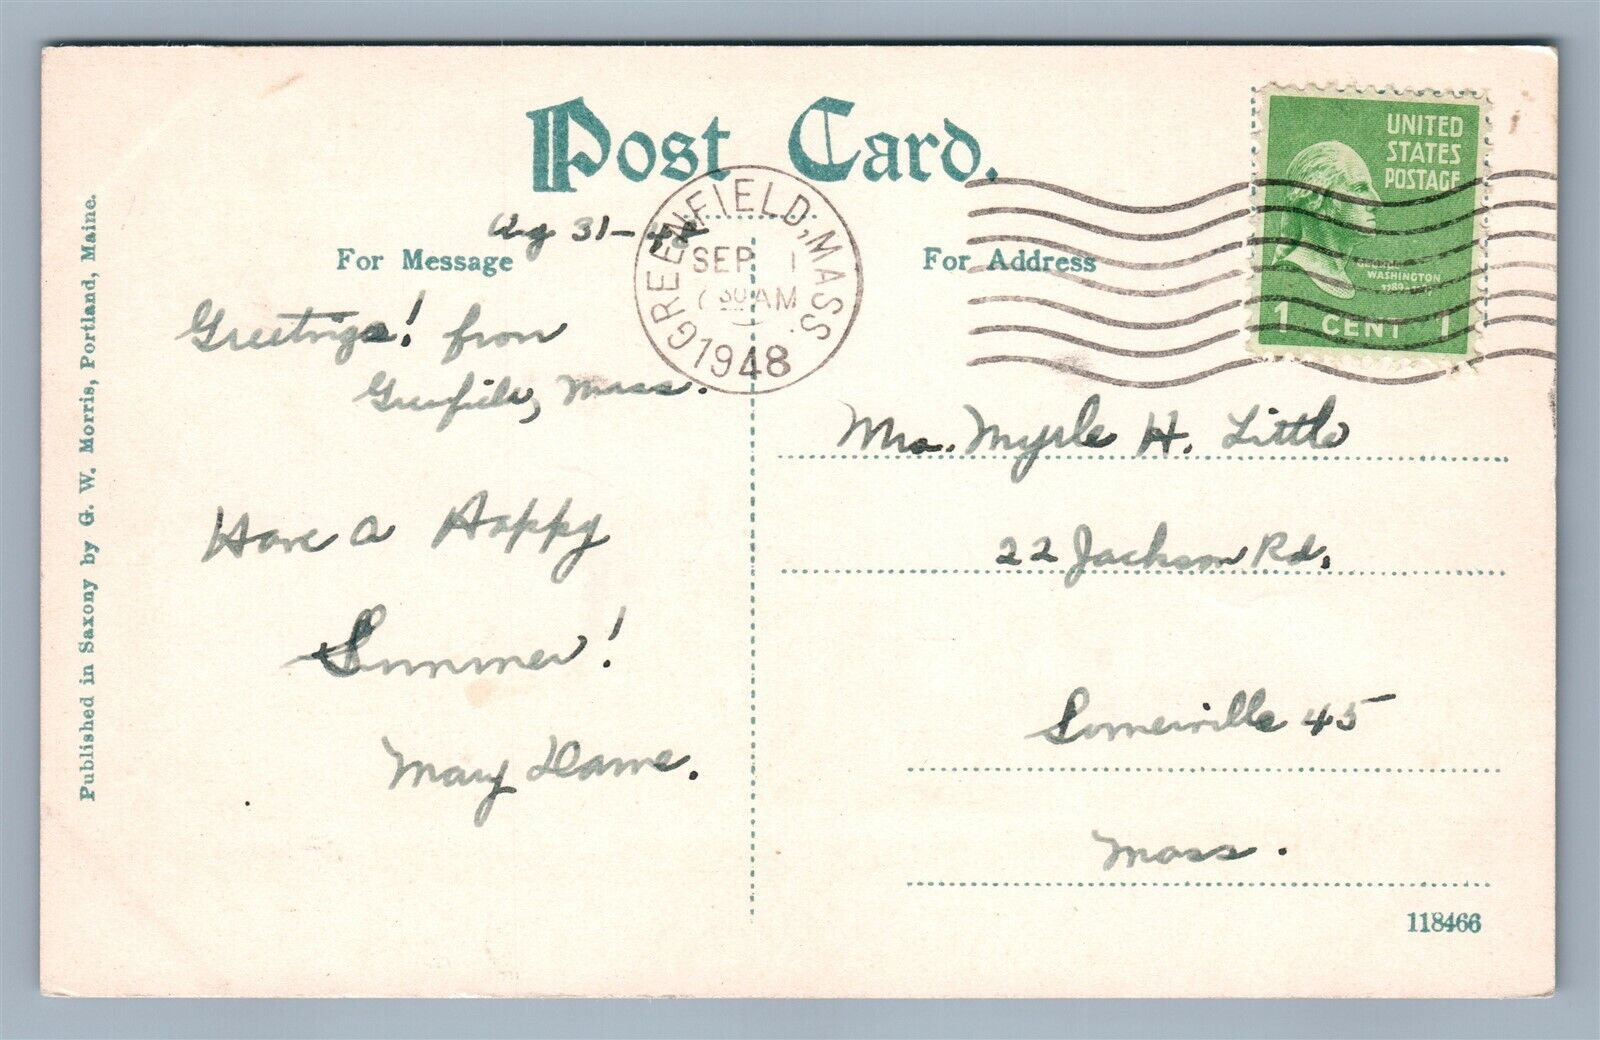 Post Card.
GREENFIELD, MASS.
SEP 1
7 30 AM
1948
UNITED
STATES
POSTAGE
WASHINGTON
1 CENT 1
Aug 31-48
For Message
For Address
Greetings! from
Greenfield, Mass.
Have a Happy
Summer!
Mary Dame.
Mrs. Myrle H. Little
22 Jackson Rd.
Somerville 45
Mass.
118466
Published in Saxony by G. W. Morris, Portland, Maine.